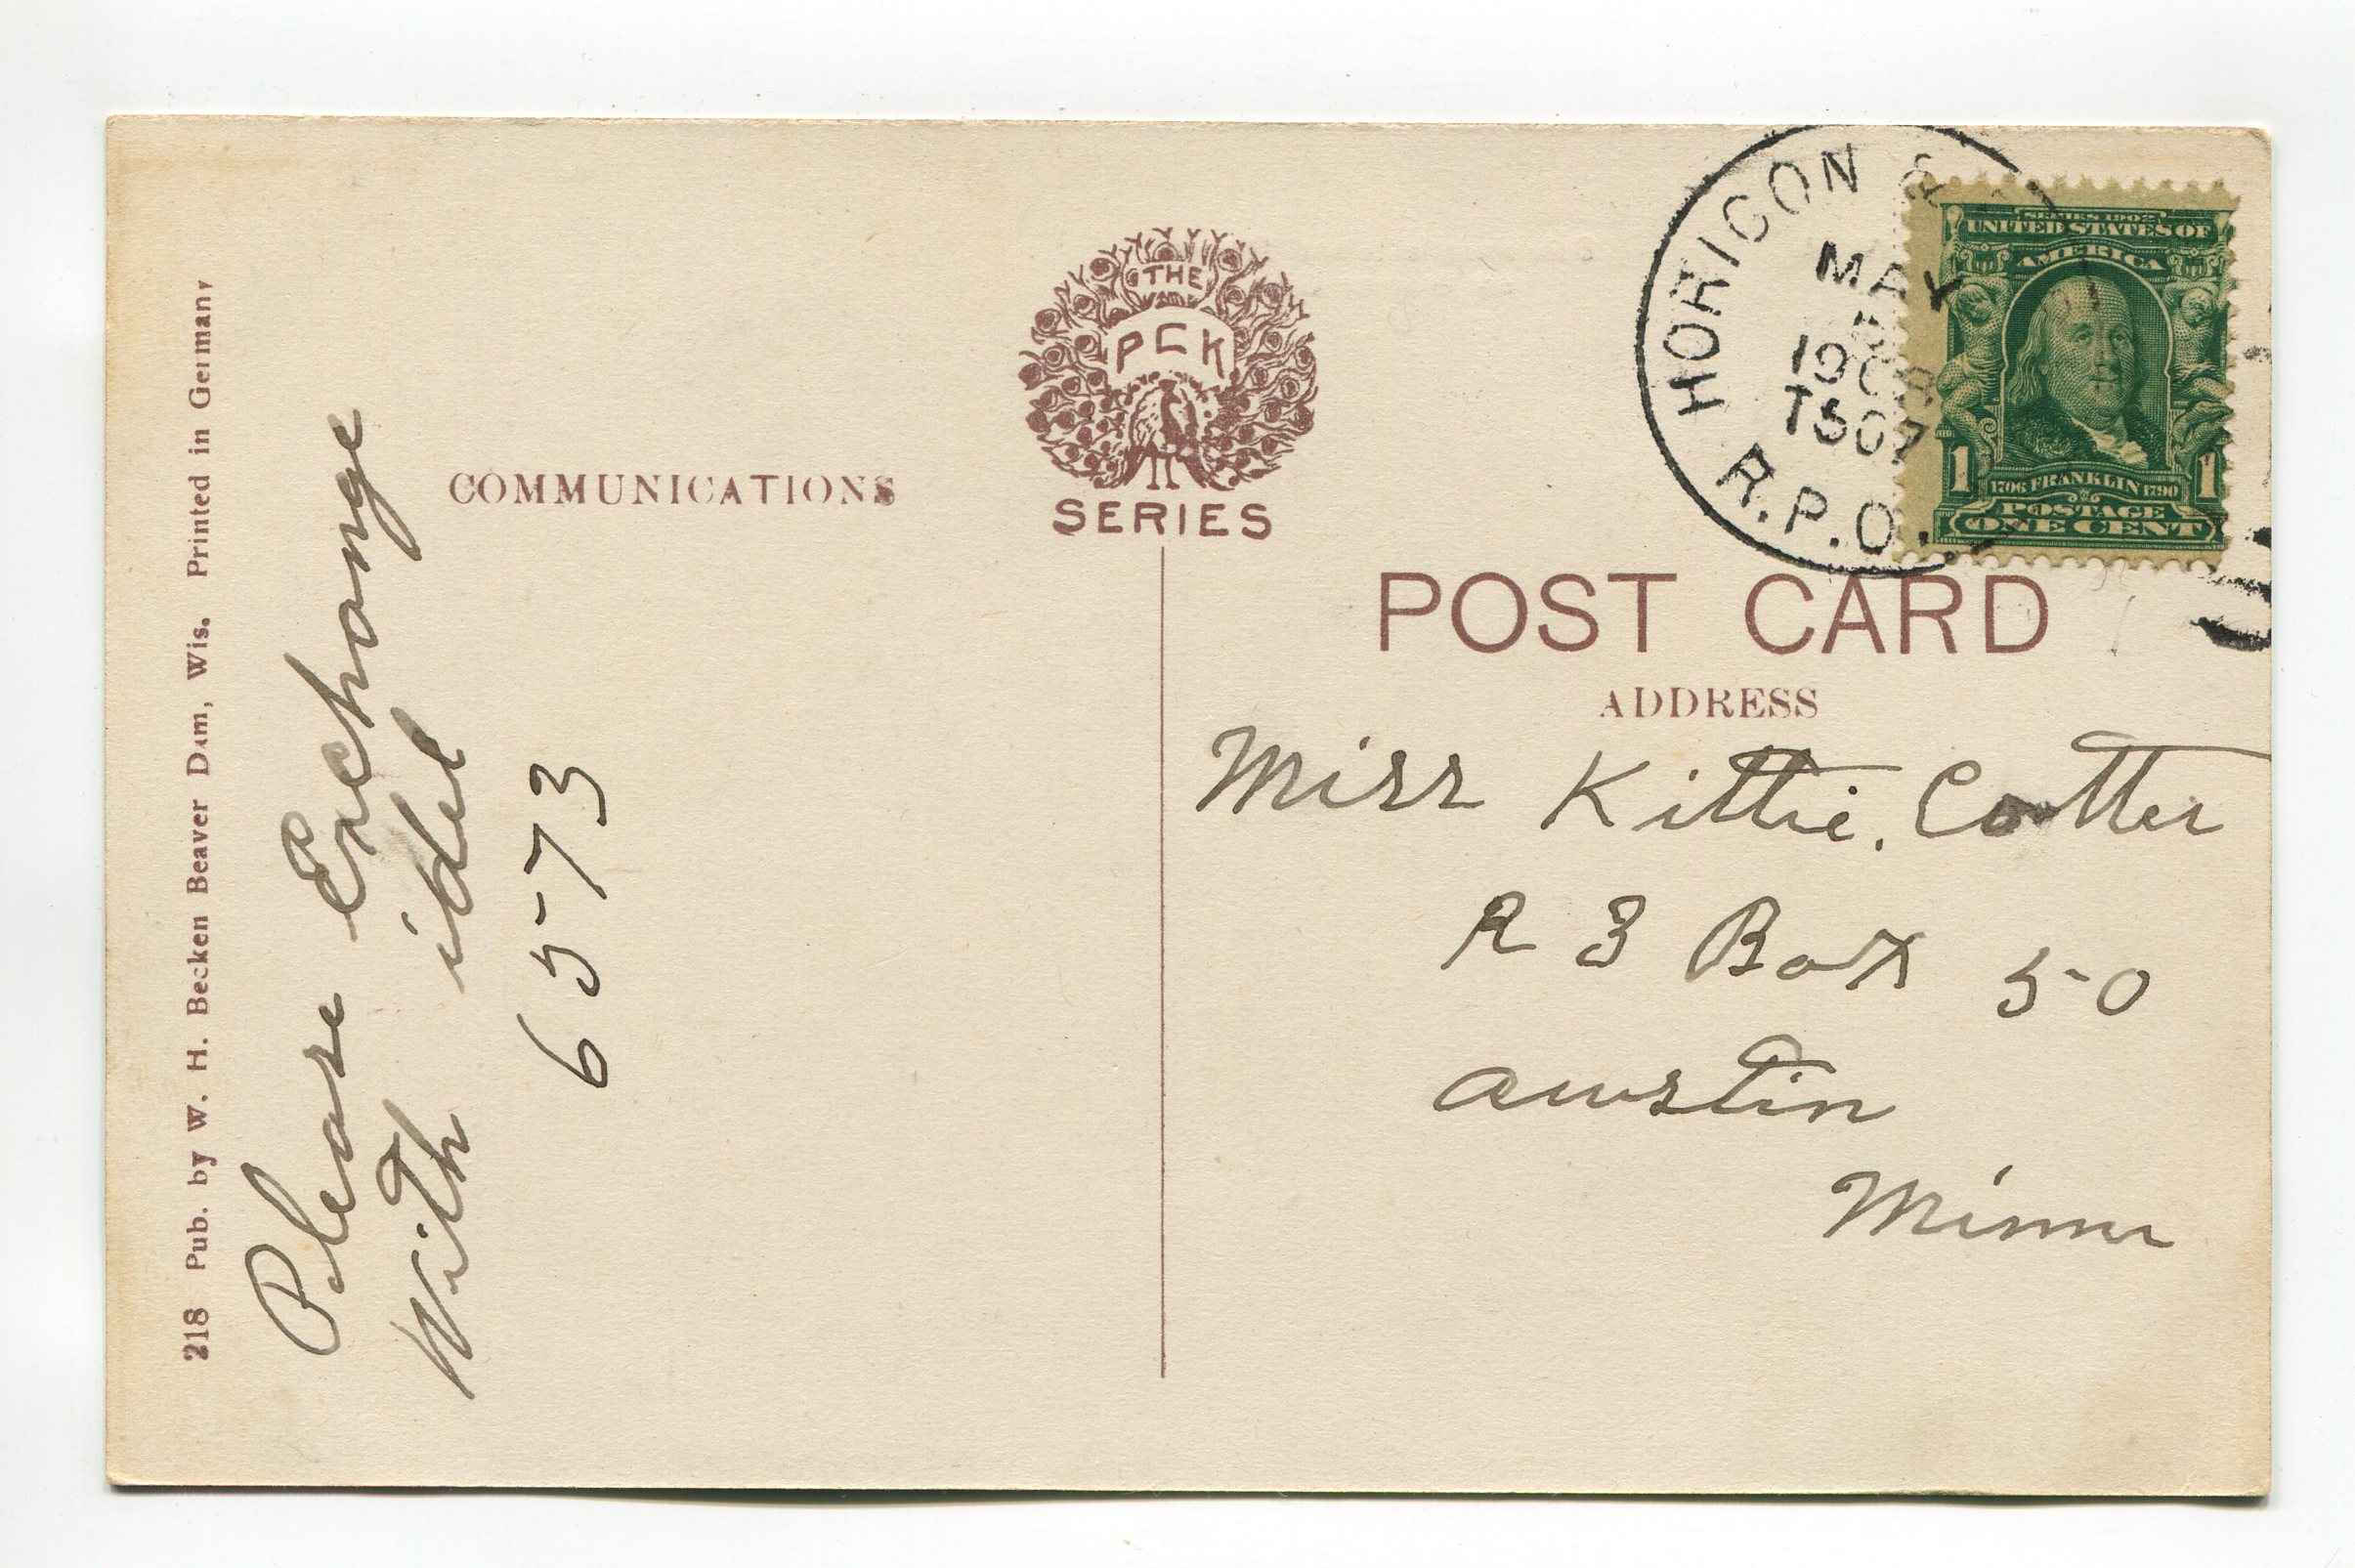 218 Pub. by W. H. Becken Beaver Dam, Wis. Printed in Germany
Please Exchange
With idel
6573
COMMUNICATIONS
THE
PCK
SERIES
HORICON &
MAY
1908
T507
R.P.O.
SERIES 1902
UNITED STATES OF
AMERICA
1 1
1706 FRANKLIN 1790
POSTAGE
ONE CENT
POST CARD
ADDRESS
Miss Kittie. Cotter
R 3 Box 50
Austin
Minn